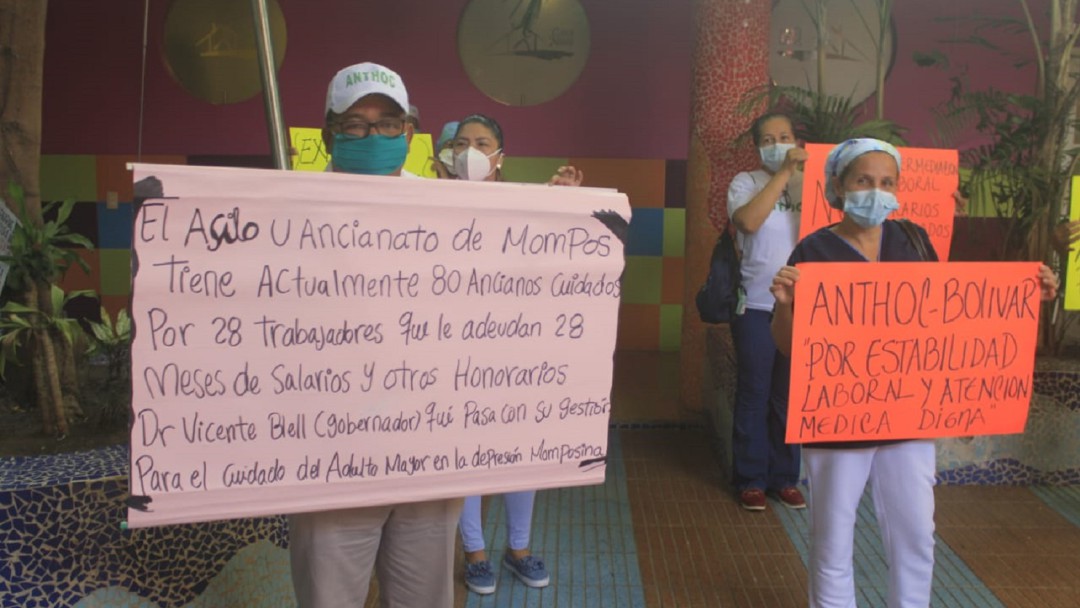 ANTHOC
EX
El Asilo U Ancianato de MomPos
Tiene Actualmente 80 Ancianos Cuidados
Por 28 trabajadores que le adeudan 28
Meses de Salarios y otros Honorarios
Dr Vicente Blell (gobernador) qui Pasa con su gestion
Para el Cuidado del Adulto Mayor en la depresión Momposina
ERMEDIA
BORAL
RARIOS
ADOS
ANTHOC-BOLIVAR
"POR ESTABILIDAD
LABORAL Y ATENCION
MEDICA DIGNA"